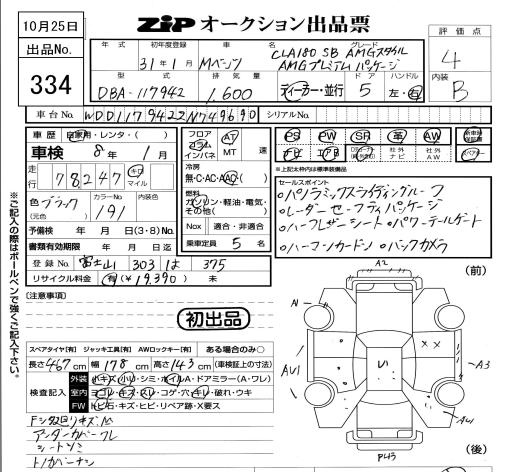 10月25日
ZIP オークション出品票
評価点
出品No.
334
年式 初年度登録 車名 グレード
31年1月 Mベンツ CLA180 SB AMGスタイル
AMGプレミアムパッケージ
4
型式 排気量 ドア ハンドル
DBA-117942 1,600 ディーラー・並行 5 左・右
内装
B
車台No. WDD1179422N749690 シリアルNo.
車歴 自家用・レンタ・( )
車検 8年1月
走行 78247 キロ マイル
色 ブラック カラーNo. 191 内装色
(元色)
予備検 年 月 日(3・8)No.
書類有効期限 年 月 日
登録No. 富士山 303 は 375
リサイクル料金 有(¥19,390) 未
フロア コラム インパネ AT MT 速
冷房 無・C・AC・AAC・( )
燃料 ガソリン・軽油・電気・その他( )
Nox 適合・非適合
乗車定員 5 名
PS PW SR 革 AW 新車時保証書
ナビ エアB 社外ナビ 社外AW
*上記太枠内は標準装備品
セールスポイント
○パノラミックスライディングルーフ
○レーダーセーフティパッケージ
○ハーフレザーシート ○パワーテールゲート
○ハーマンカードン ○バックカメラ
※ご記入の際はボールペンで強くご記入下さい。
(注意事項)
初出品
スペアタイヤ[有] ジャッキ工具[有] AWロックキー[有] ある場合のみ○
長さ 467 cm 幅 178 cm 高さ 143 cm (車検証上の寸法)
検査記入
外装 小キズ・小凹・シミ・ホイルA・ドアミラー(A・ワレ)
室内 ヨゴレ・キズ・スレ・コゲ・穴・キレ・破れ・ウキ
FW トビ石・キズ・ヒビ・リペア跡・X要ス
アンダーカバーワレ
(前)
A2
N
AU1
A3
A41
P43
(後)